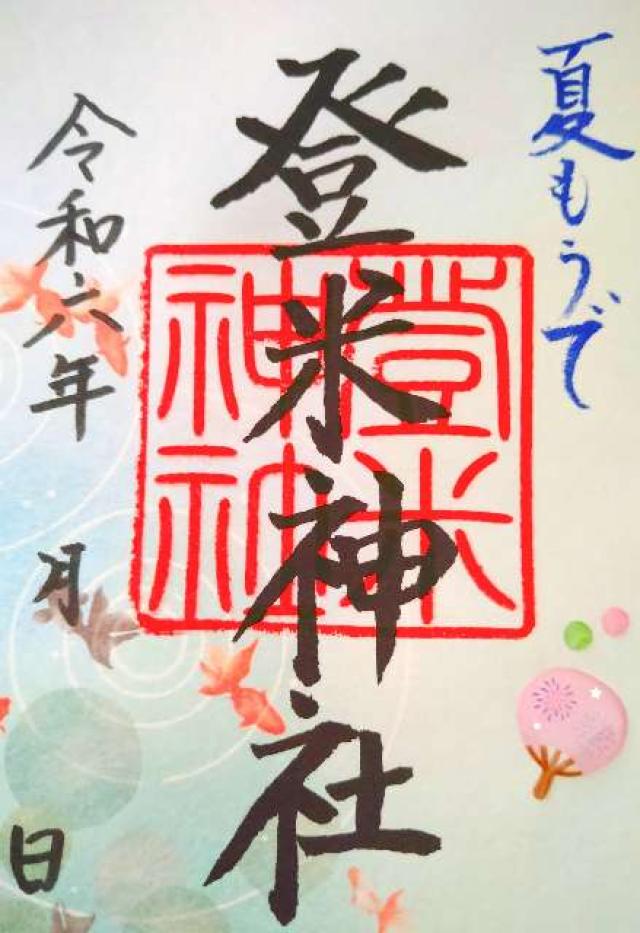 夏もうで
登米神社
登米
神社
令和六年 月 日